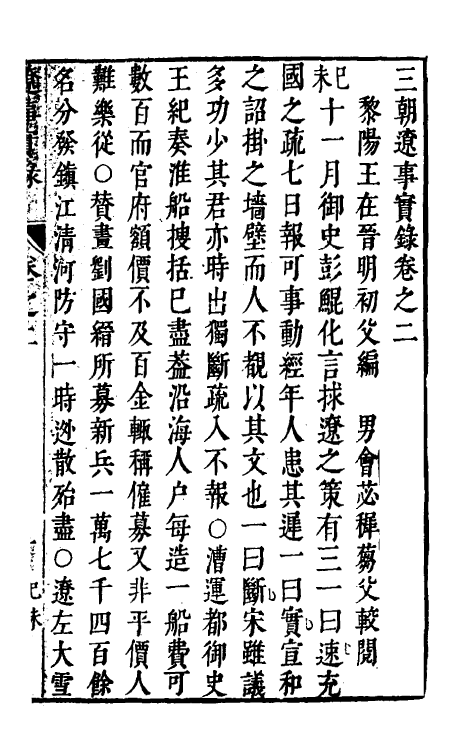 三朝遼事實錄卷之二
黎陽王在晉明初父編　男會苾穉芻父較閱
己未十一月御史彭鯤化言捄遼之策有三一曰速充
國之疏七日報可事動經年人患其遲一曰實宣和
之詔掛之墻壁而人不覩以其文也一曰斷宋雖議
多功少其君亦時出獨斷疏入不報○漕運都御史
王紀奏淮船搜括已盡葢沿海人户每造一船費可
數百而官府額價不及百金輒稱僱募又非平價人
難樂從○賛畫劉國縉所募新兵一萬七千四百餘
名分發鎮江清河防守一時迯散殆盡○遼左大雪
卷之二
己未